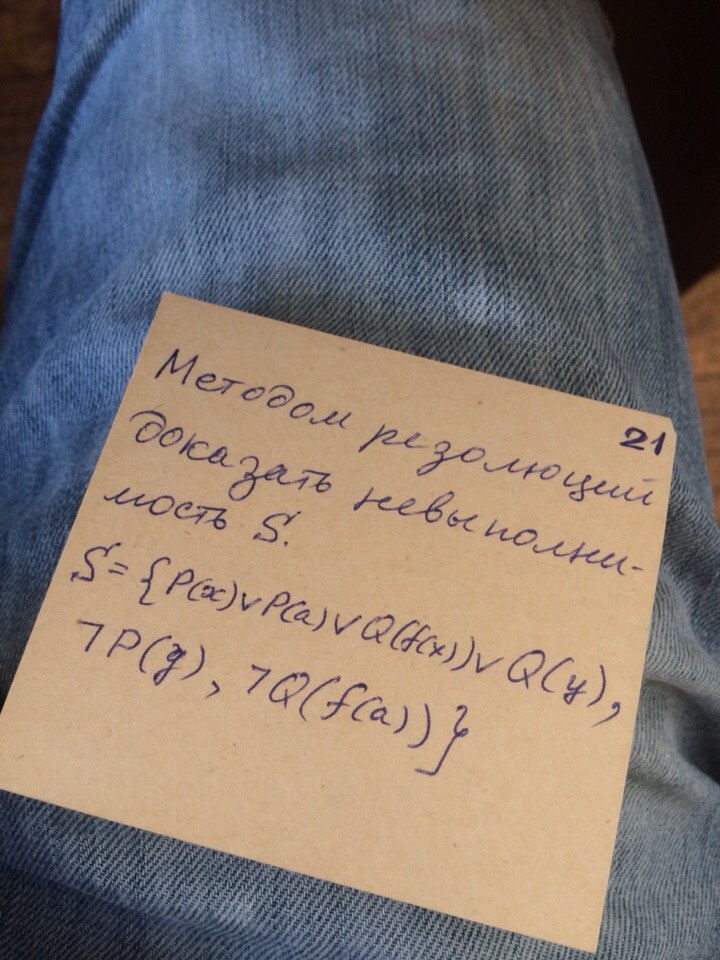 21
Методом резолюций
доказать невыполни-
мость S.
S = {P(x)∨P(a)∨Q(f(x))∨Q(y),
¬P(y), ¬Q(f(a))}